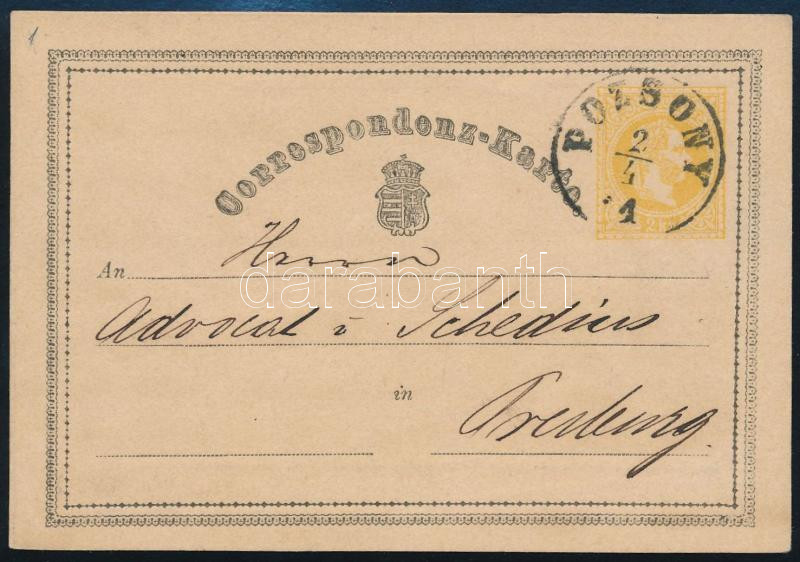 1
Correspondenz-Karte
POZSONY
2/4
1
2
Herrn
An
darabanth
Advocat v Schedius
in
Presburg.